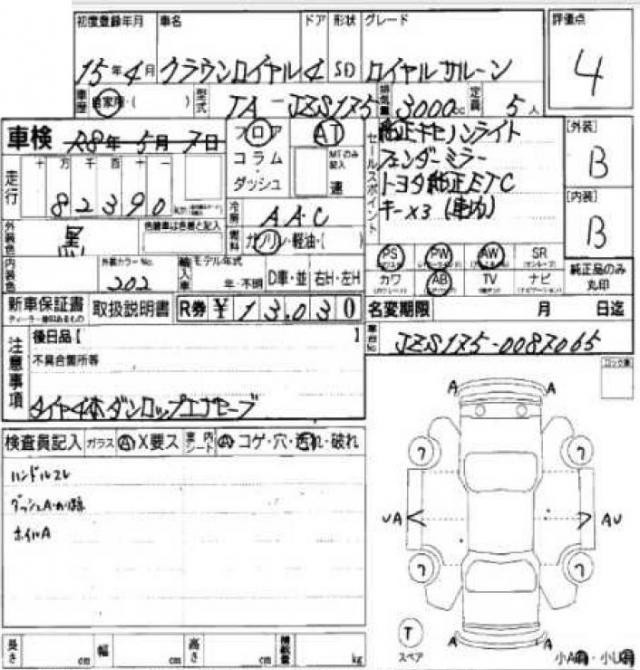 初度登録年月 車名 ドア 形状 グレード 評価点
15年4月 クラウンロイヤル 4 SD ロイヤルサルーン 4
車歴 自家用・( ) 型式 TA-JZS175 排気量 3000cc 定員 5人
車検 R8年5月7日 フロア AT 純正キセノンライト [外装]
コラム MTのみ記入 フェンダーミラー B
走行 十万千百十一 ・ダッシュ 速 セールスポイント トヨタ純正ETC
82390 キー×3 (車内) [内装]
冷房 AAC B
外装色 黒 色替車は色番と記入 燃料 ガソリン・軽油・( ) PS PW AW SR
内装色 外装カラーNo. 202 輸入車 モデル年式 年・不明 D車・並 右H・左H カワ AB TV ナビ 純正品のみ丸印
新車保証書 取扱説明書 R券 ¥13,030 名変期限 月 日迄
後日品【 】 車台No. JZS175-0087065
注意事項 不具合箇所等
タイヤ4本ダンロップエナセーブ
検査員記入 ガラス A X要ス 車内シート A コゲ・穴・汚れ・破れ
ハンドルスレ
ダッシュA・のり跡
ホイルA
A A
7 7
UA AU
7 7
T
スペア
A A
小A・小U
長さ cm 幅 cm 高さ cm 積載量 kg